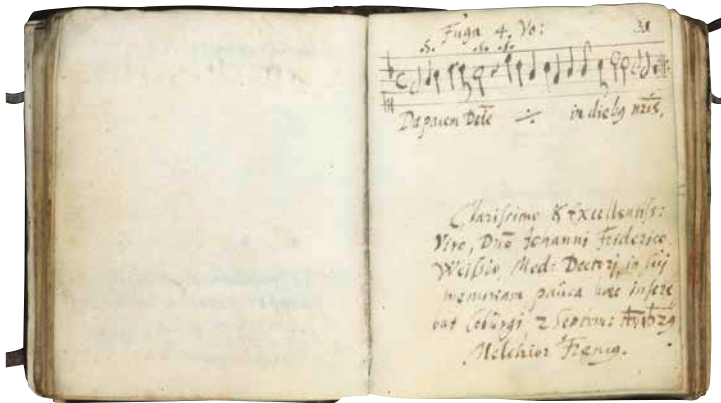 Fuga 4. Vo:
Da pacem Dñe ÷ in dieb9 nris,
Clarissimo & Excellentiss:
Viro, Dnõ Johanni Friderico
Weissio, Med: Doctori, in sui
memoriam pauca haec insere
bat Coburgi 2 Septem:
Melchior Franck.